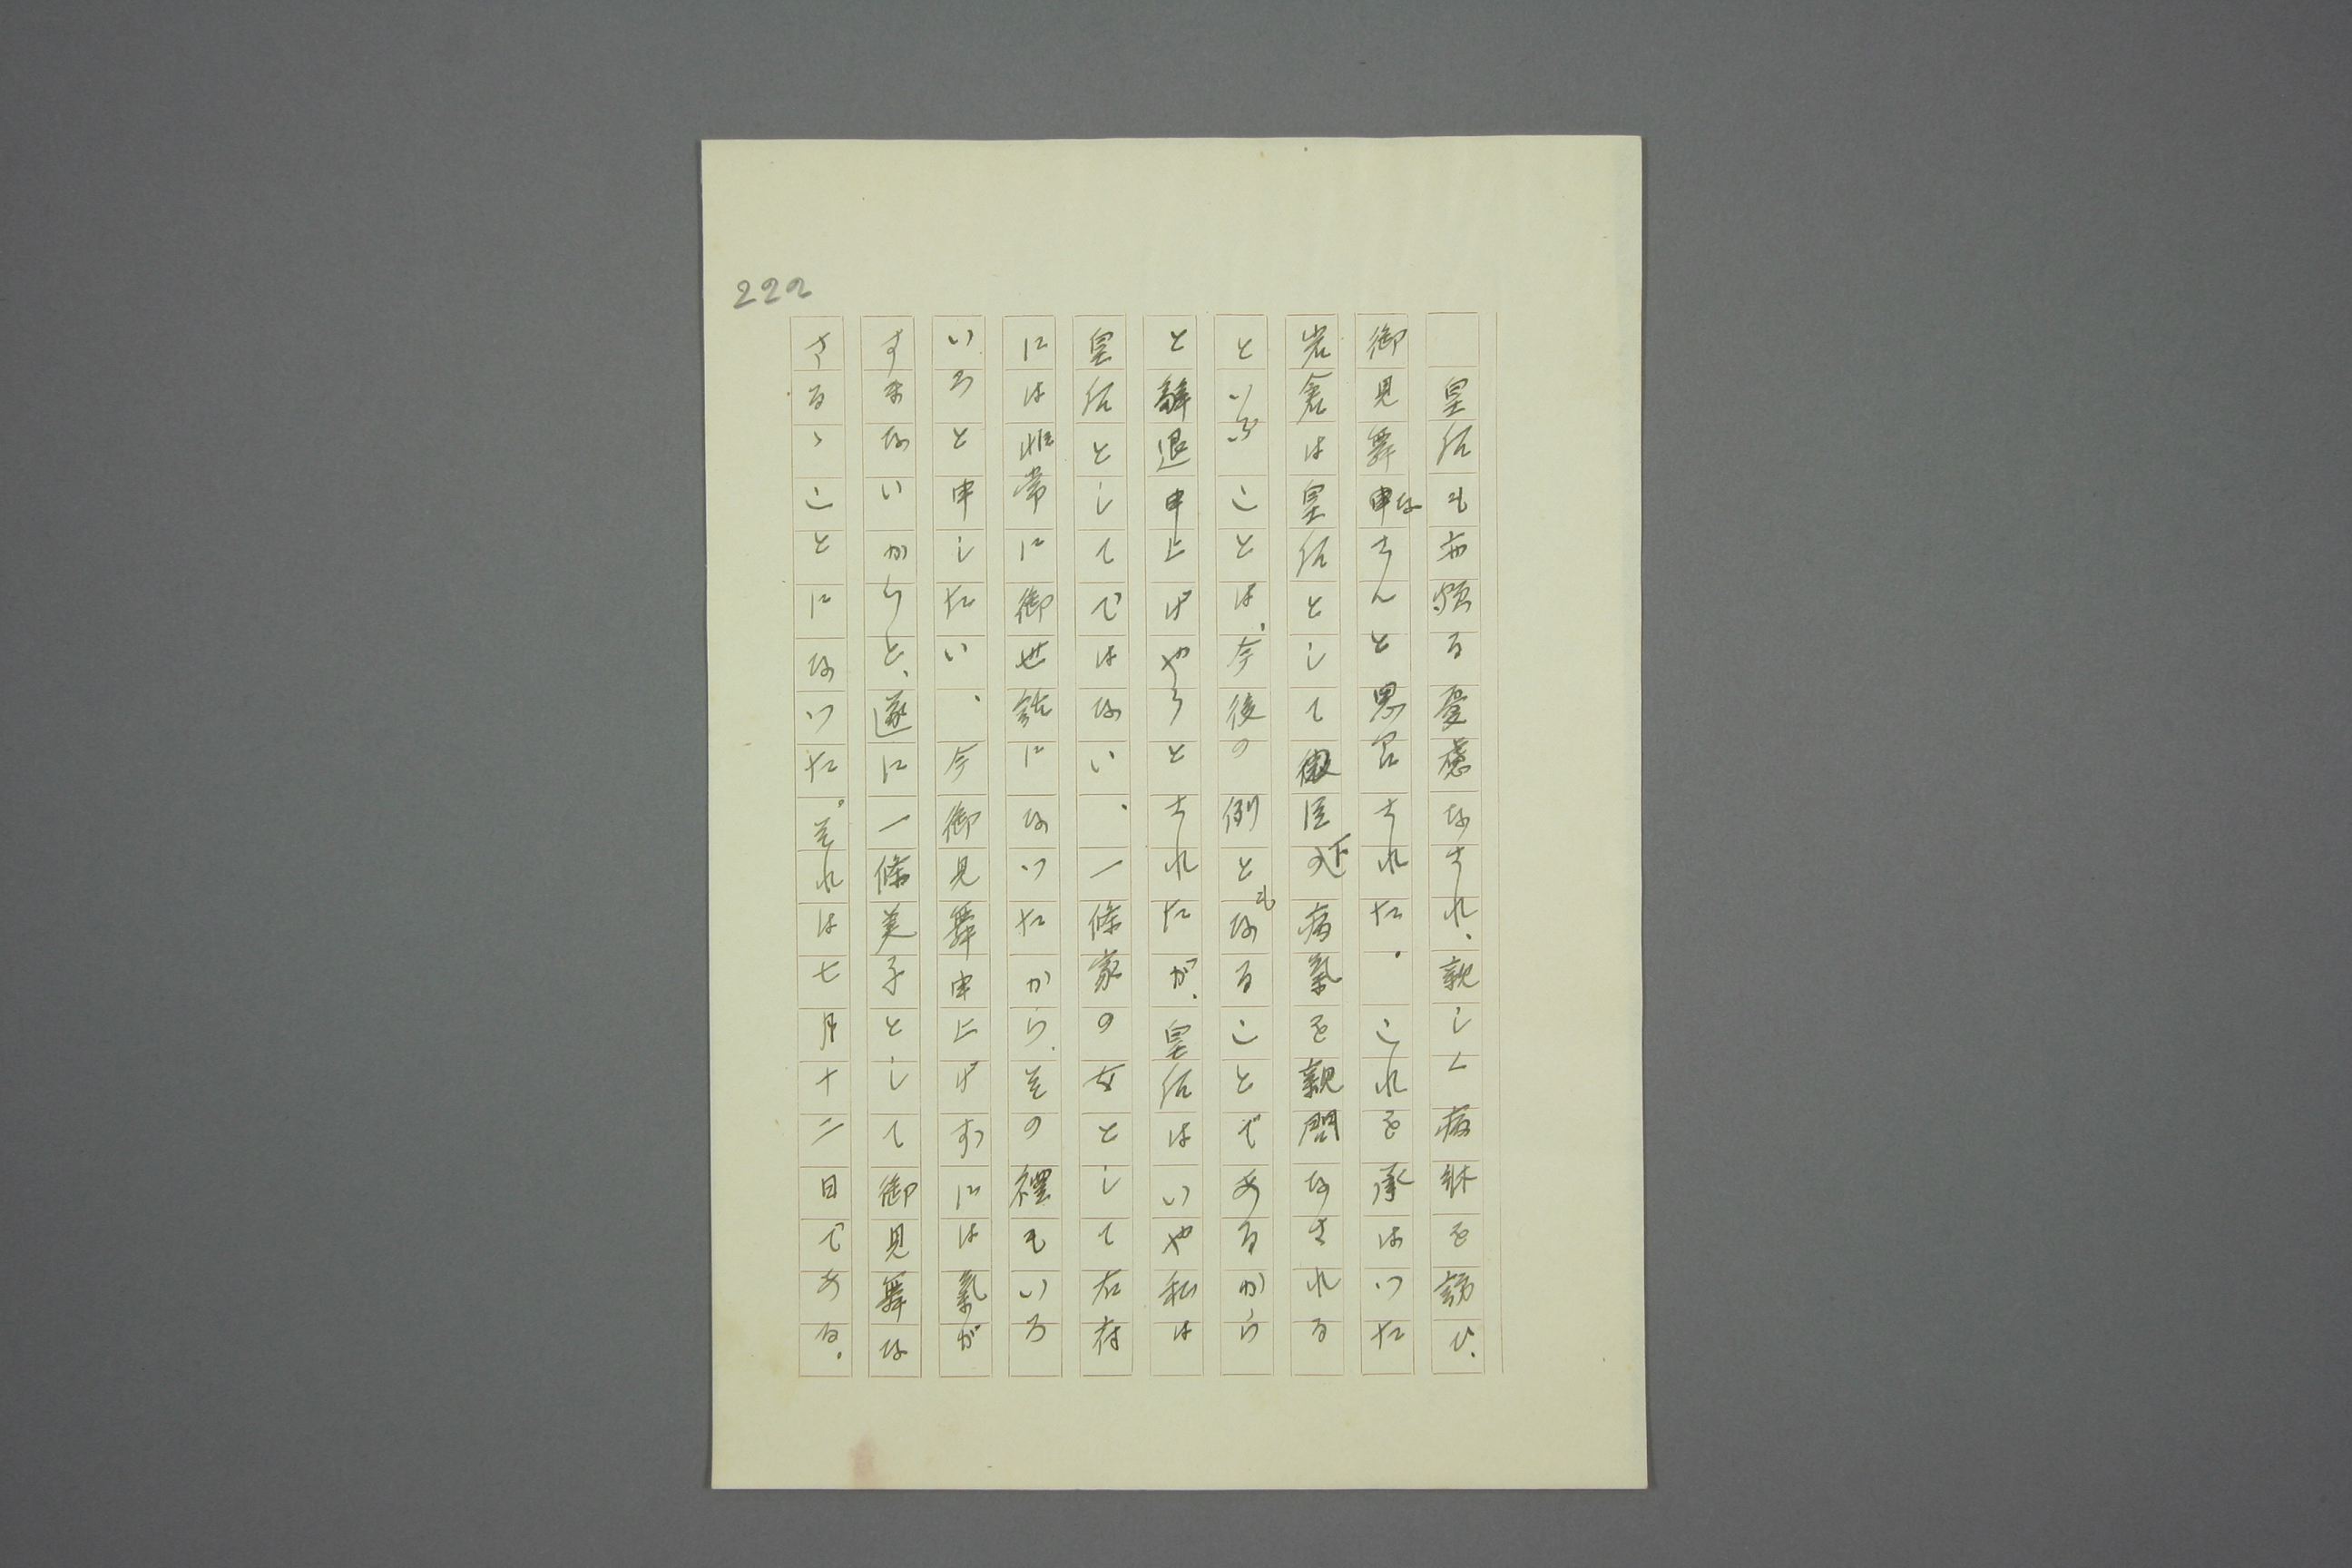 222
皇后も亦頗る憂慮なされ、親しく病牀を訪ひ、
御見舞なさんと思召された。これを承はつた
岩倉は皇后として微臣の病氣を親問なされる
といふことは、今後の例ともなることであるから
と辭退申上げやうとされたが、皇后はいや私は
皇后としてではない、一條家の女として右府
には非常に御世話になつたから、その禮もいろ
いろと申したい、今御見舞申上げずには氣が
すまないからと、遂に一條美子として御見舞な
さるゝことになつた。それは七月十二日である。